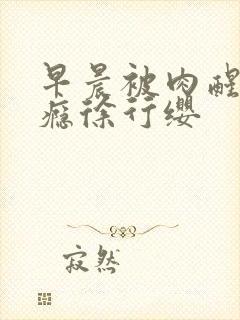 早晨被肉醒
瘾徐行缨
寂然